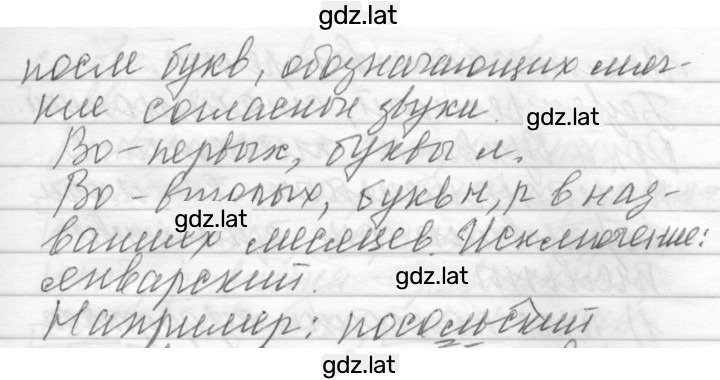 gdz.lat
после букв, обозначающих мяг-
кие согласные звуки.
gdz.lat
Во-первых, буквы л.
Во-вторых, букв н, р в наз-
gdz.lat
ваниях месяцев. Исключение:
январский.
gdz.lat
Например: посольский
gdz.lat